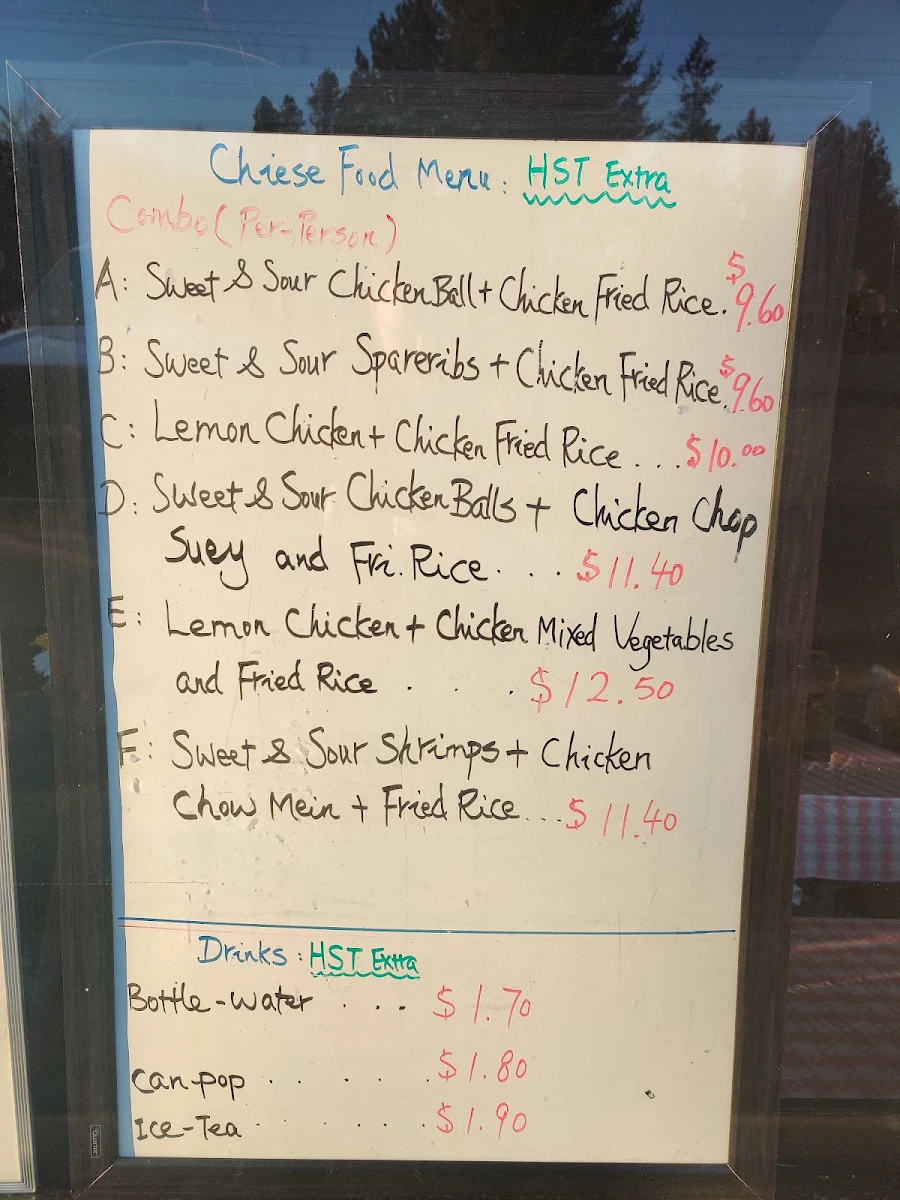 Chiese Food Menu: HST Extra
Combo (Per-Person)
A: Sweet & Sour Chicken Ball + Chicken Fried Rice. $9.60
B: Sweet & Sour Spareribs + Chicken Fried Rice. $9.60
C: Lemon Chicken + Chicken Fried Rice . . . $10.00
D: Sweet & Sour Chicken Balls + Chicken Chop
Suey and Fri. Rice . . . $11.40
E: Lemon Chicken + Chicken Mixed Vegetables
and Fried Rice . . . $12.50
F: Sweet & Sour Shrimps + Chicken
Chow Mein + Fried Rice . . . $11.40
Drinks: HST Extra
Bottle-water . . . . $1.70
Can-pop . . . . . $1.80
Ice-Tea . . . . . $1.90
Quartet